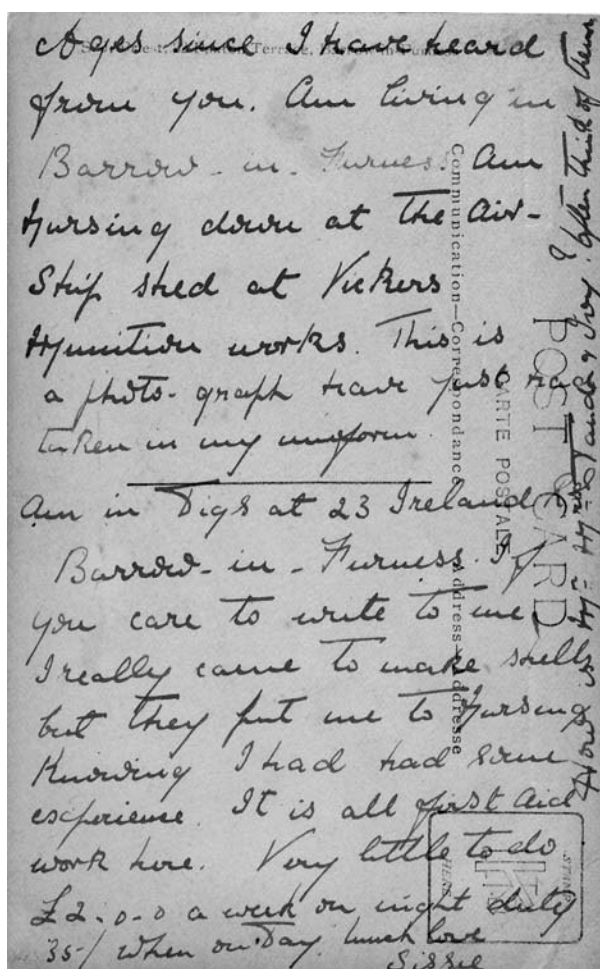 Ages since I have heard
from you. Am living in
Barrow-in-Furness. Am
Nursing down at the Air-
Ship shed at Vickers
Munition works. This is
a photo-graph have just had
taken in my uniform.
Am in Digs at 23 Ireland
Barrow-in-Furness. If
you care to write to me,
I really came to make shells
but they put me to Nursing
Knowing I had had some
experience. It is all first aid
work here. Very little to do
£2-0-0 a week on night duty
35-/ when on Day. much love
Sissie
How is Mr & Mrs & Ivy? Often think of them
POST CARD
CARTE POSTALE
Communication—Correspondance
Address—Adresse
STAMP
HERE